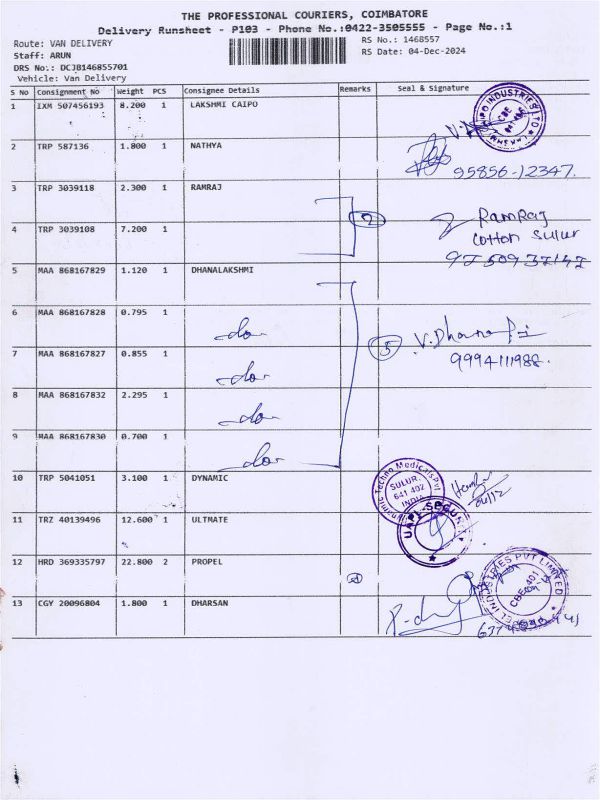 THE PROFESSIONAL COURIERS, COIMBATORE
Delivery Runsheet - P103 - Phone No.:0422-3505555 - Page No.:1
Route: VAN DELIVERY
RS No.: 1468557
Staff: ARUN
RS Date: 04-Dec-2024
DRS No.: DCJB146855701
Vehicle: Van Delivery
S No Consignment No Weight PCS Consignee Details Remarks Seal & Signature
1 IXM 507456193 8.200 1 LAKSHMI CAIPO
2 TRP 587136 1.800 1 NATHYA
95856-12347.
3 TRP 3039118 2.300 1 RAMRAJ
2 RamRaj
Cotton Sulur
4 TRP 3039108 7.200 1
5 MAA 868167829 1.120 1 DHANALAKSHMI
6 MAA 868167828 0.795 1 do
5 V. Dhana
7 MAA 868167827 0.855 1 do
9994111988.
8 MAA 868167832 2.295 1 do
9 MAA 868167830 0.700 1 do
10 TRP 5041051 3.100 1 DYNAMIC
Dynamic Techno Medicals Pvt
SULUR.
641 402
INDIA
11 TRZ 40139496 12.600 1 ULTMATE
12 HRD 369335797 22.800 2 PROPEL
INDUSTRIES PVT LIMITED
CBE-401
13 CGY 20096804 1.800 1 DHARSAN